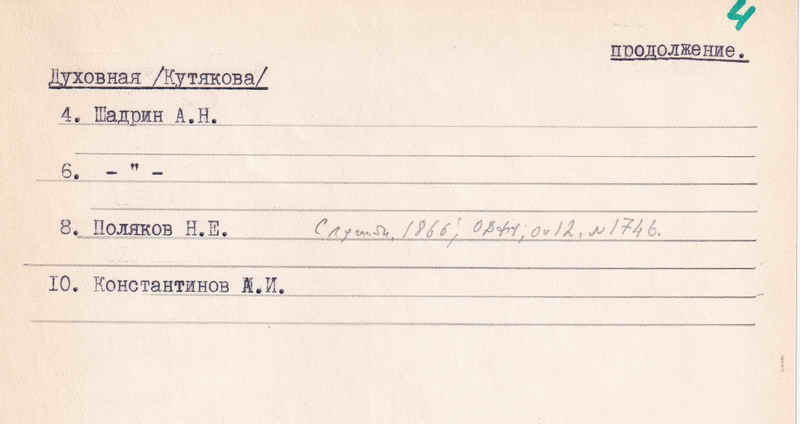 4
продолжение.
Духовная /Кутякова/
4. Шадрин А.Н.
6. - " -
8. Поляков Н.Е. Служби, 1866; оп 12, № 1746.
10. Константинов А.И.